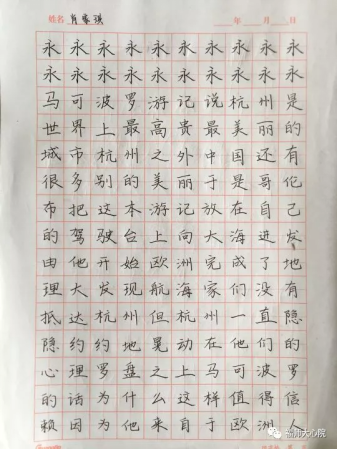 姓名 肖家琪 年 月 日
永永永永永永永永永
永永永永永永永永永
马可波罗游记说杭州是
世界上最高贵最美丽的
城市杭州之外中国还有
很多别的美丽于是哥伦
布把这本游记放在自己
的驾驶台上向大海进发
由他开始欧洲完成了地
理大发现航海家们没有
抵达杭州但杭州一直隐
隐约约地晃动在他们的
心理罗盘之上马可波罗
的话为什么这样值得信
赖因为他来自于欧洲人